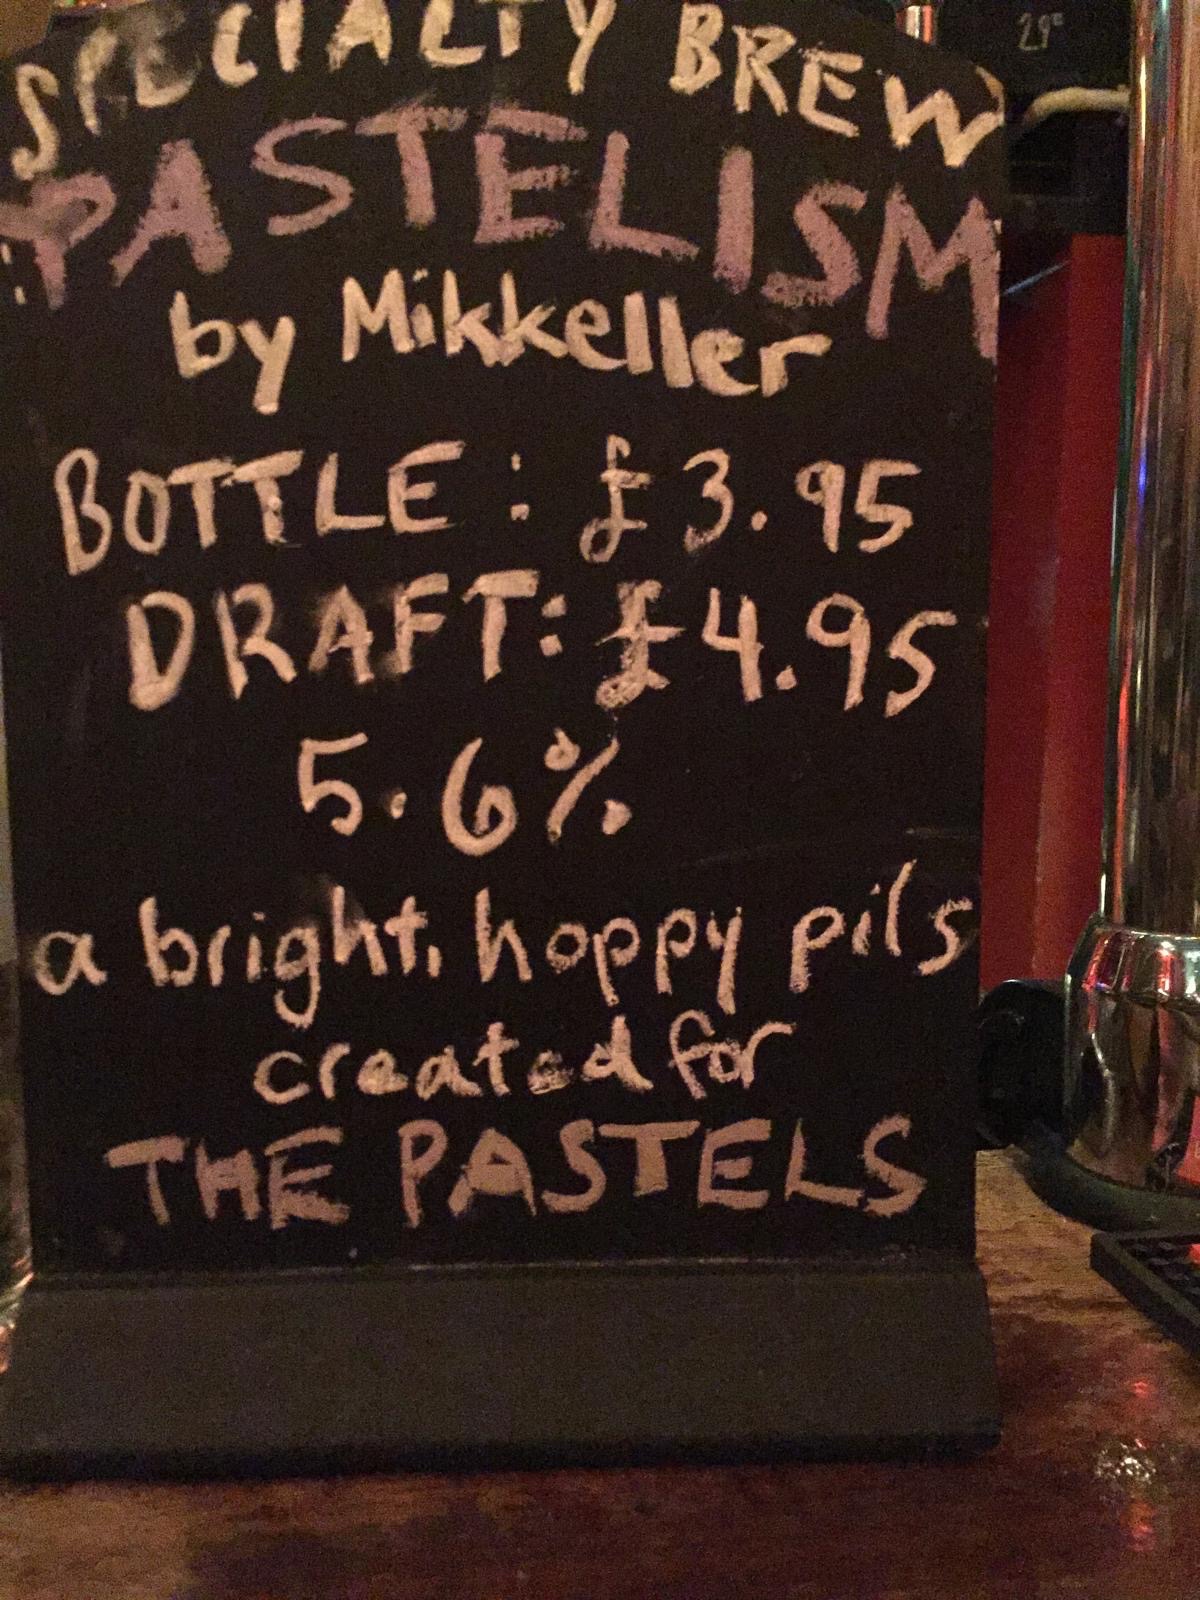 SPECIALTY BREW
PASTELISM
by Mikkeller
BOTTLE: £3.95
DRAFT: £4.95
5.6%
a bright, hoppy pils
created for
THE PASTELS